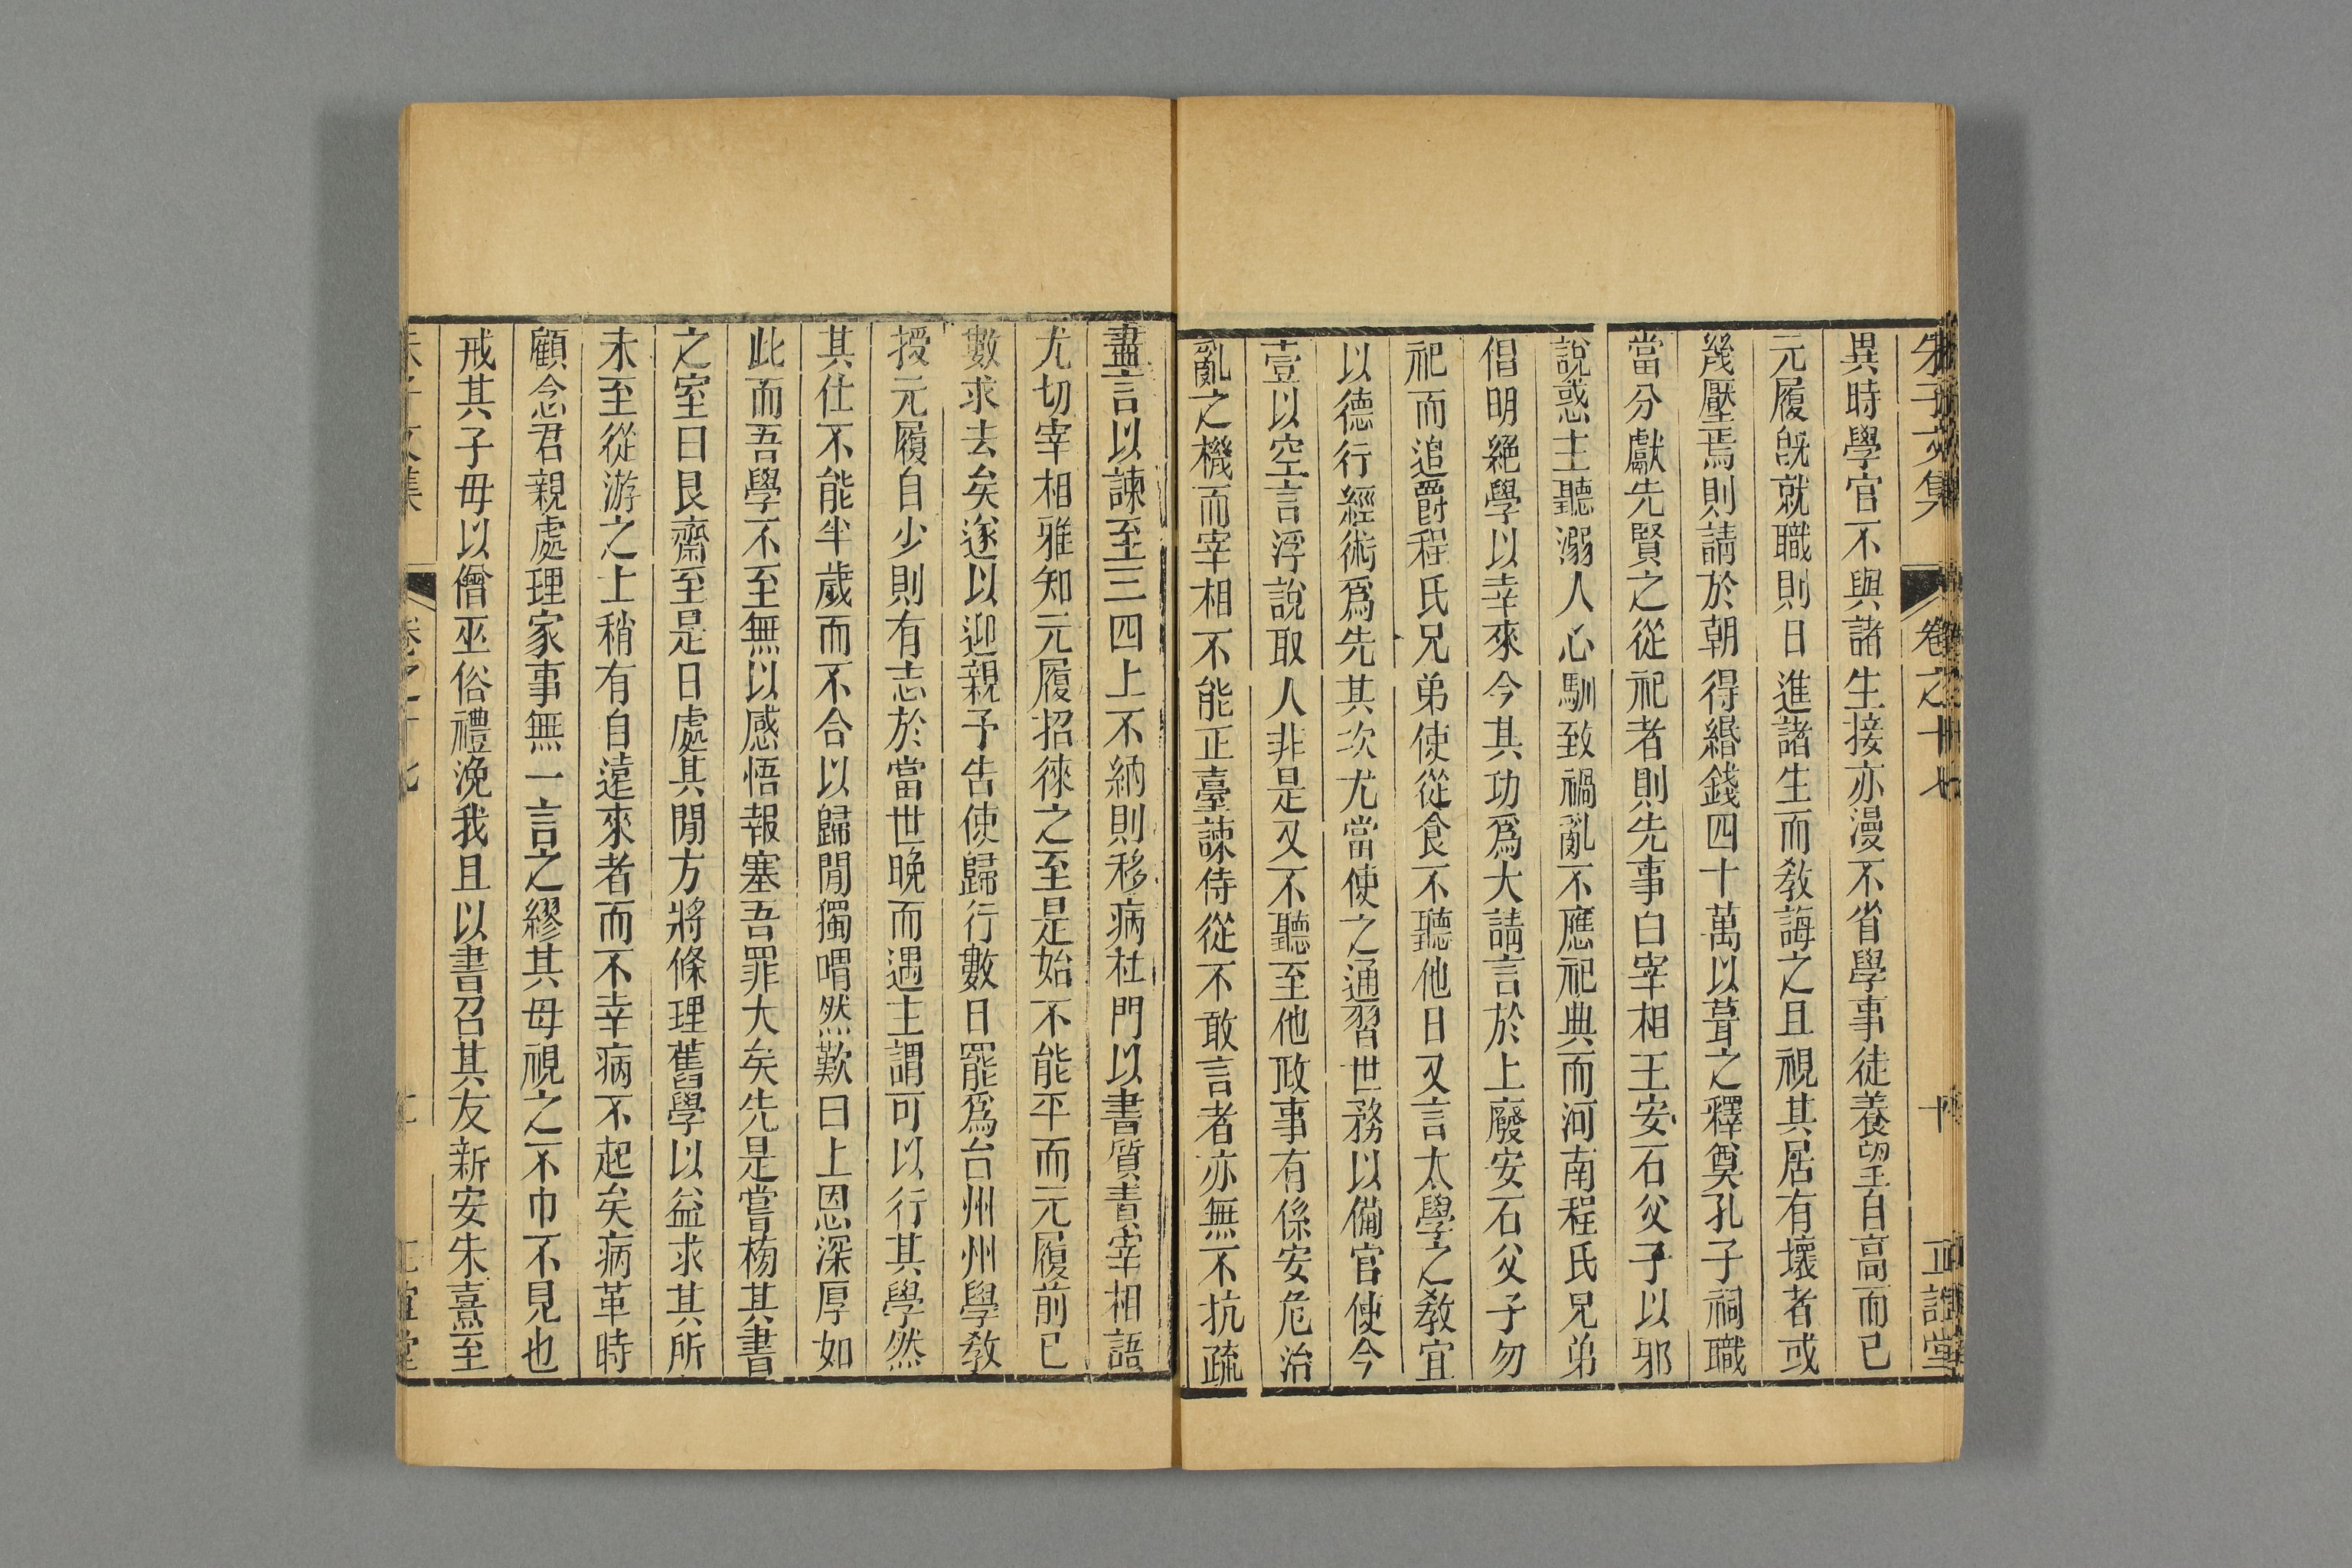 朱子文集 卷之十七 十 正誼堂
異時學官不與諸生接亦漫不省學事徒養望自高而已
元履旣就職則日進諸生而敎誨之且視其居有壞者或
幾壓焉則請於朝得緡錢四十萬以葺之釋奠孔子祠職
當分獻先賢之從祀者則先事白宰相王安石父子以邪
說惑主聽溺人心馴致禍亂不應祀典而河南程氏兄弟
倡明絕學以幸來今其功爲大請言於上廢安石父子勿
祀而追爵程氏兄弟使從食不聽他日又言太學之敎宜
以德行經術爲先其次尤當使之通習世務以備官使今
壹以空言浮說取人非是又不聽至他政事有係安危治
亂之機而宰相不能正臺諫侍從不敢言者亦無不抗疏
盡言以諫至三四上不納則移病杜門以書質責宰相語
尤切宰相雅知元履招徠之至是始不能平而元履前已
數求去矣遂以迎親予告使歸行數日罷爲台州州學敎
授元履自少則有志於當世晚而遇主謂可以行其學然
其仕不能半歲而不合以歸閒獨喟然歎曰上恩深厚如
此而吾學不至無以感悟報塞吾罪大矣先是嘗榜其書
之室曰艮齋至是日處其閒方將條理舊學以益求其所
未至從游之士稍有自遠來者而不幸病不起矣病革時
顧念君親處理家事無一言之繆其母視之不巾不見也
戒其子毋以僧巫俗禮浼我且以書召其友新安朱熹至
朱子文集 卷之十七 正誼堂